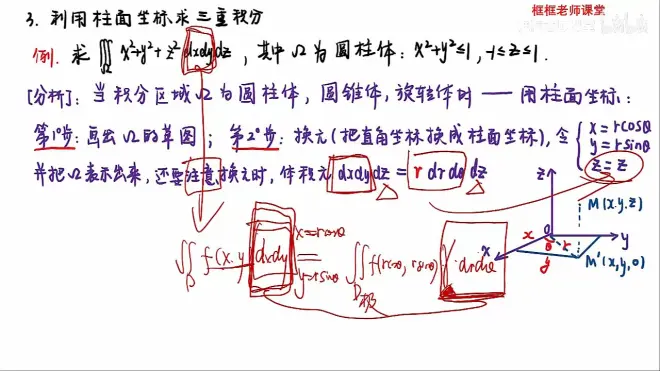 框框老师课堂
3. 利用柱面坐标求三重积分
例. 求 ∭Ω x²+y²+z² dxdydz, 其中Ω为圆柱体: x²+y²≤1, -1≤z≤1.
[分析]: 当积分区域Ω为圆柱体, 圆锥体, 旋转体时 —— 用柱面坐标:
第1°步: 画出Ω的草图; 第2°步: 换元(把直角坐标换成柱面坐标), 令 { x=rcosθ y=rsinθ z=z
并把Ω表示出来, 还要注意换元时, 体积元 dxdydz = r dr dθ dz
∬D f(x,y) dxdy x=rcosθ y=rsinθ = ∬D极 f(rcosθ, rsinθ) r drdθ
z
M(x.y.z)
O
x
θ
r
y
x
y
M'(x,y,0)